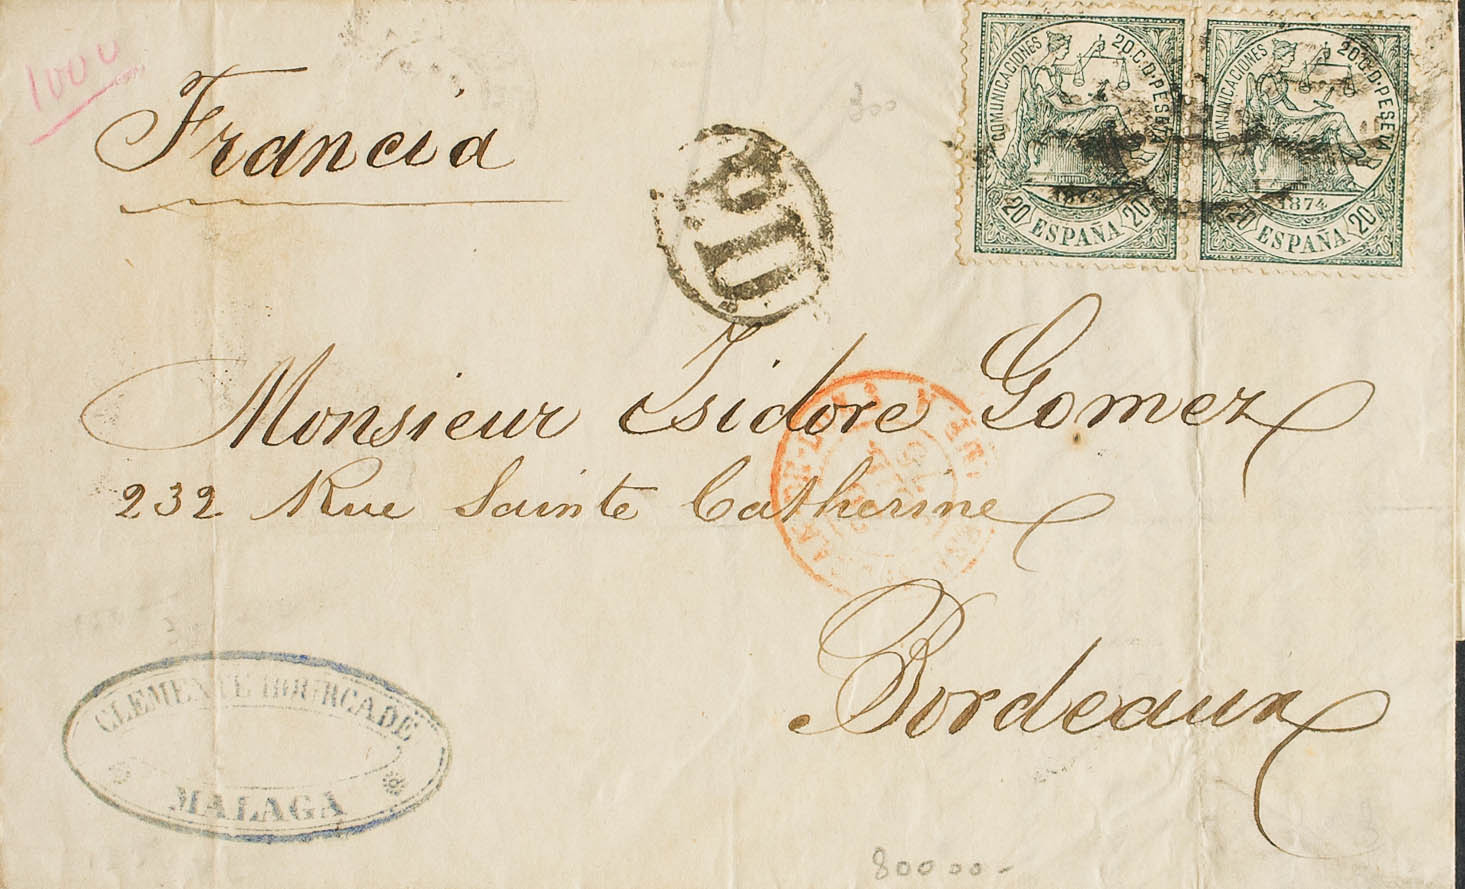 1000
Francia
P.D.
COMUNICACIONES 20 C. D. PESETA
1874
20 ESPAÑA 20
COMUNICACIONES 20 C. D. PESETA
1874
20 ESPAÑA 20
Monsieur Isidore Gomez
232 Rue Sainte Catherine
Bordeaux
CLEMENTE BOURCADE
MALAGA
80000-